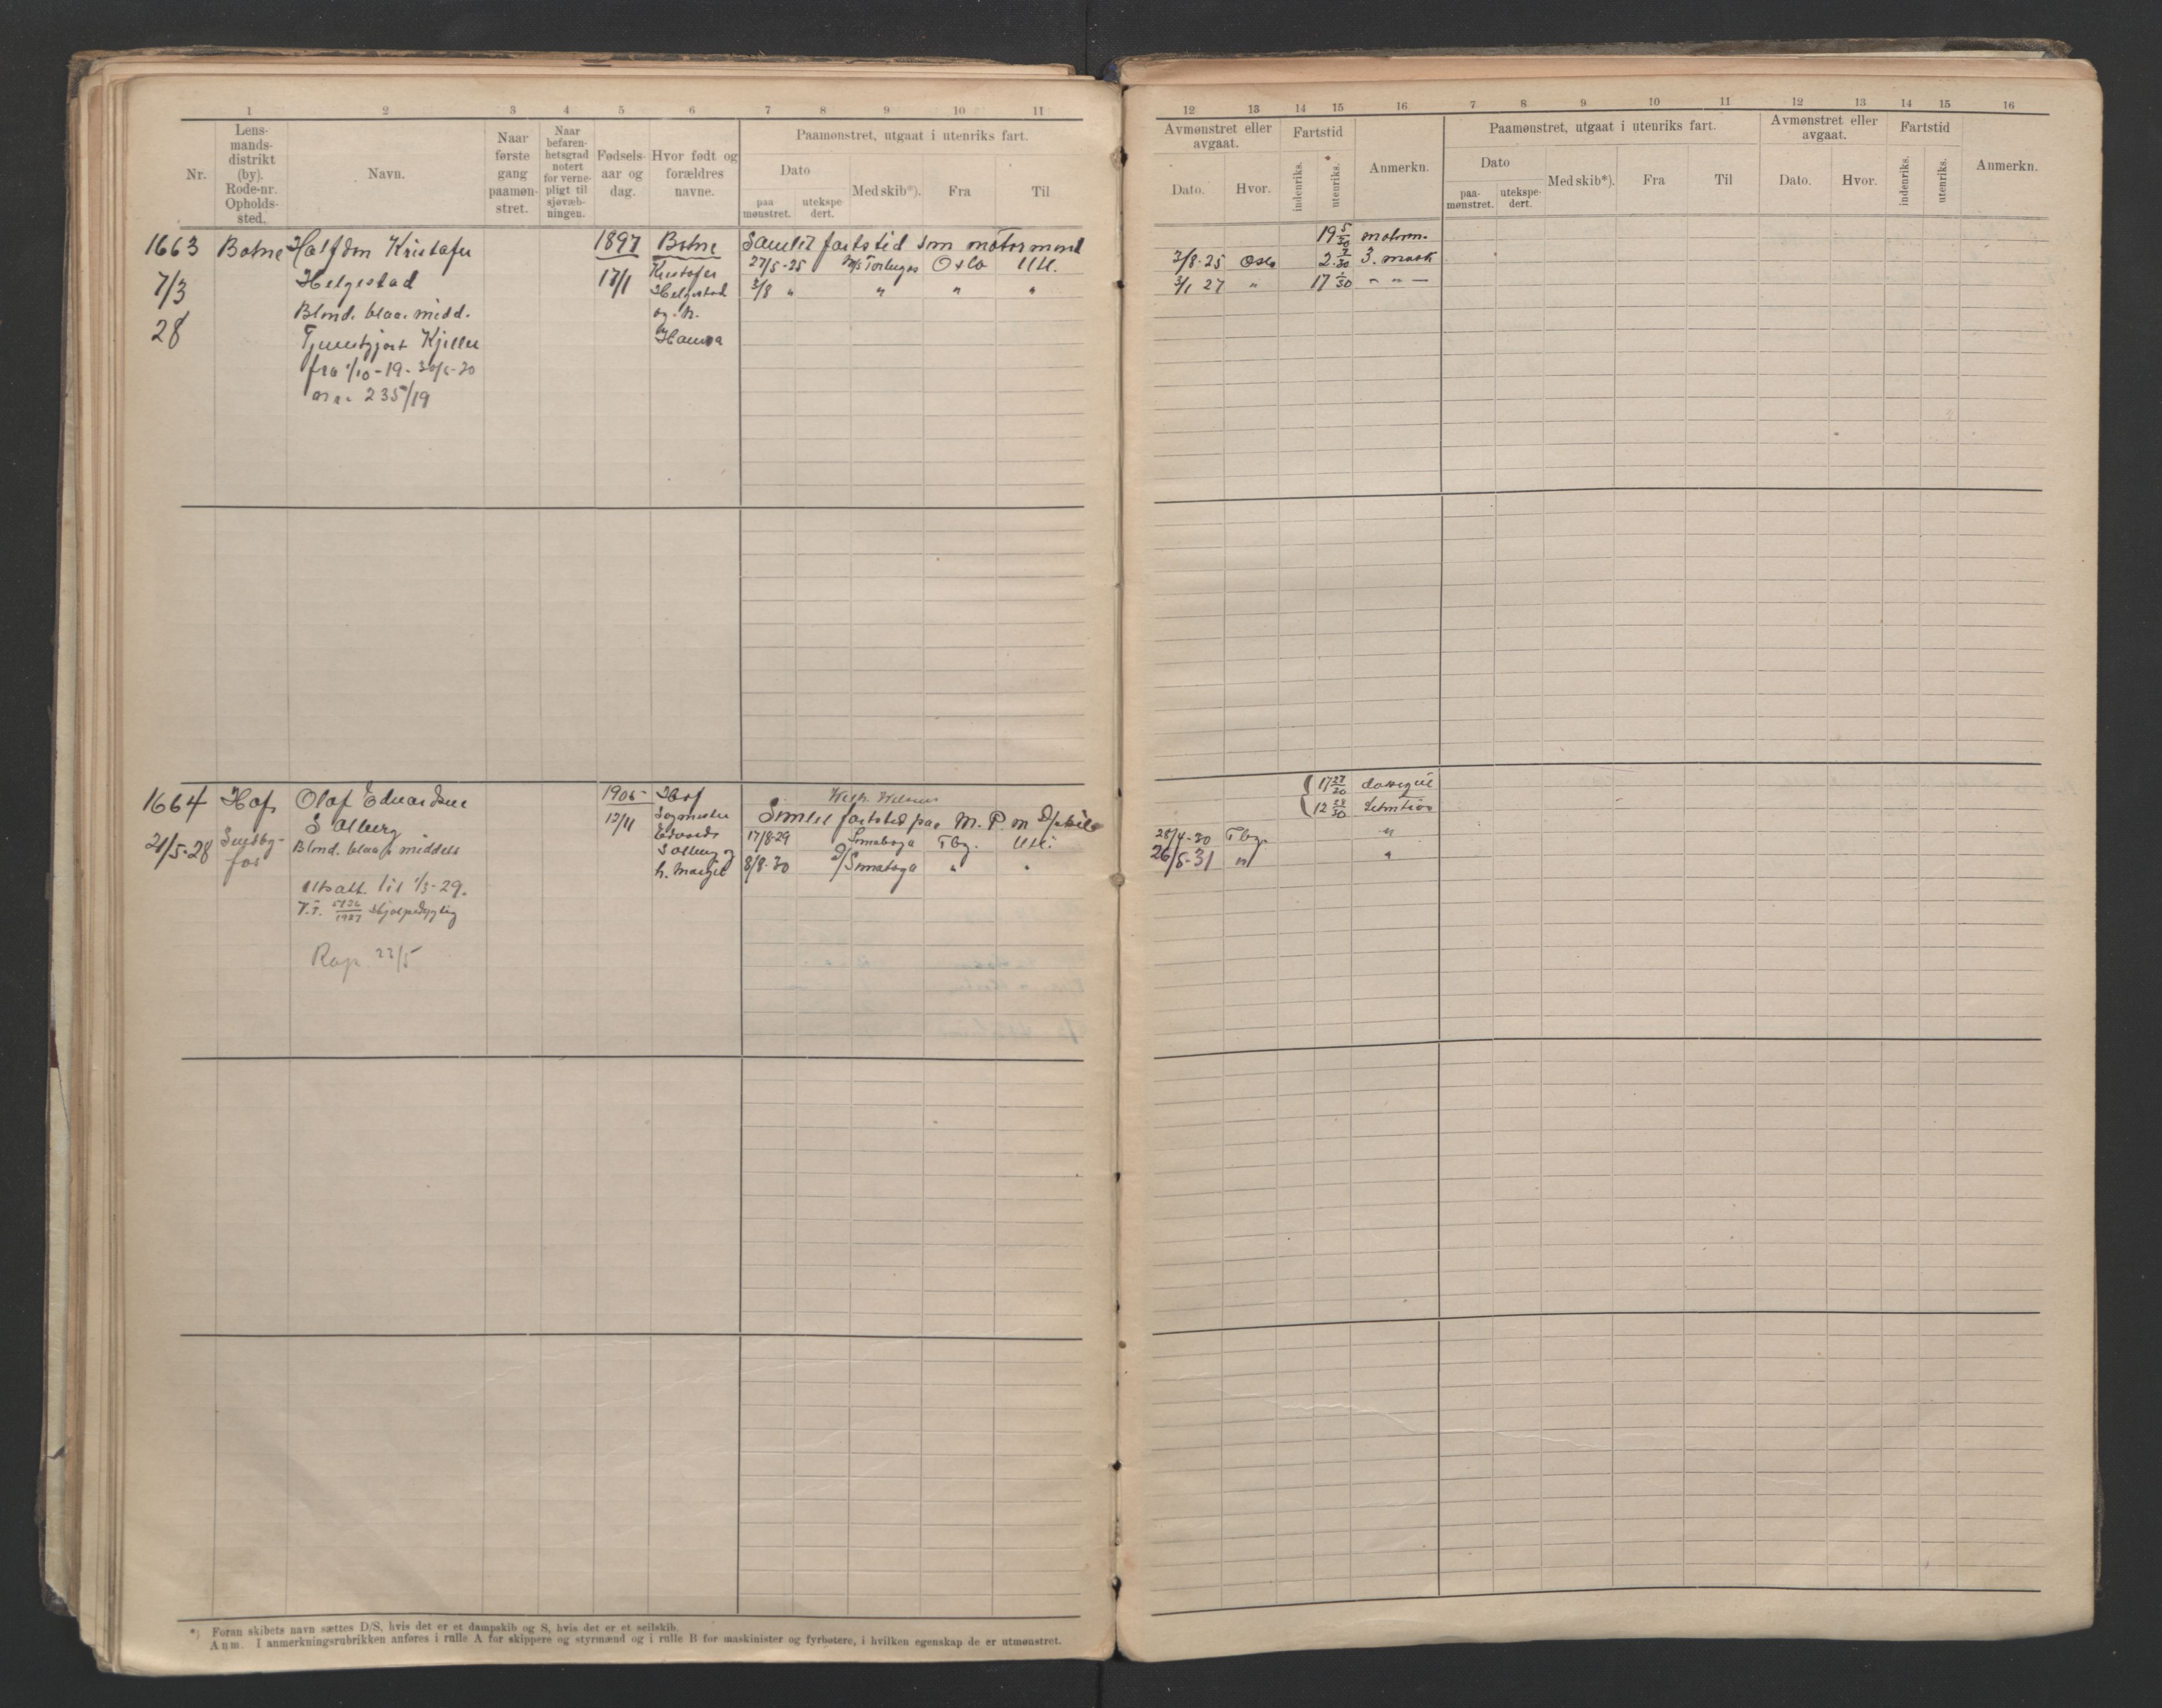 1 2 3 4 5 6 7 8 9 10 11
Nr.
Lens-
mands-
distrikt
(by).
Rode-nr.
Opholds-
sted.
Navn.
Naar
første
gang
paamøn-
stret.
Naar
befaren-
hetsgrad
notert
for verne-
pligt til
sjøvæb-
ningen.
Fødsels-
aar og
dag.
Hvor født og
forældres
navne.
Paamønstret, utgaat i utenriks fart.
Dato
paa
mønstret.
utekspe-
dert.
Med skib*).
Fra
Til
1663 Botne Halfdan Kristofer 1897 Botne Samlet fartstid som motormand
Helgestad 17/1 Kristofer 27/5-25 M/S Oslo Utl.
7/3 Helgestad 3/8 " " " "
Blond. blaa. midd. og h.
28 Kjeller
fra 1/10-19-
235/19
1664 Hof Olaf Edvardsen 1906 Hof
Solberg 12/11 Samlet fartstid paa M. P. m
21/5-28 Blond. blaa middels Solberg og 17/8-29 Tbg. Utl.
h. 8/8-30 " "
Utsatt. til 1/3-29.
V.T. 1927
Rap. 22/5
*) Foran skibets navn sættes D/S, hvis det er et dampskib og S, hvis det er et seilskib.
Anm. I anmerkningsrubrikken anføres i rulle A for skippere og styrmænd og i rulle B for maskinister og fyrbøtere, i hvilken egenskap de er utmønstret.
12 13 14 15 16 7 8 9 10 11 12 13 14 15 16
Avmønstret eller
avgaat.
Dato.
Hvor.
Fartstid
indenriks.
utenriks.*
Anmerkn.
Paamønstret, utgaat i utenriks fart.
Dato
paa-
mønstret.
utekspe-
dert.
Med skib*).
Fra
Til
Avmønstret eller
avgaat.
Dato.
Hvor.
Fartstid
indenriks.
utenriks.
Anmerkn.
19 5/30 motorm.
3/8-25 Oslo 2. 7/30 3. mask
3/1 27 " 17 1/30 - " -
17 27/30
12 28/30
28/4-30 Tbg. "
26/5-31 " "